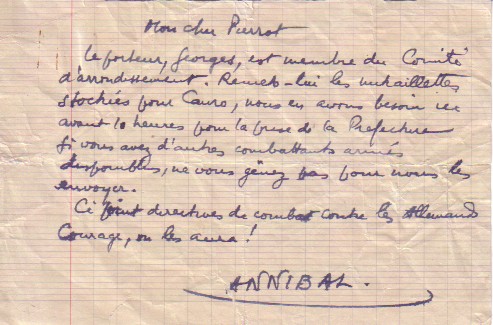 Mon cher Pierrot
Le porteur, Georges, est membre du Comité
d'arrondissement. Remets-lui les mitraillettes
stockées pour Cauro, nous en avons besoin ici
avant 10 heures pour la prise de la Préfecture
Si vous avez d'autres combattants armés
disponibles, ne vous gênez pas pour nous les
envoyer.
Ci joint directives de combat contre les Allemands
Courage, on les aura !
ANNIBAL.